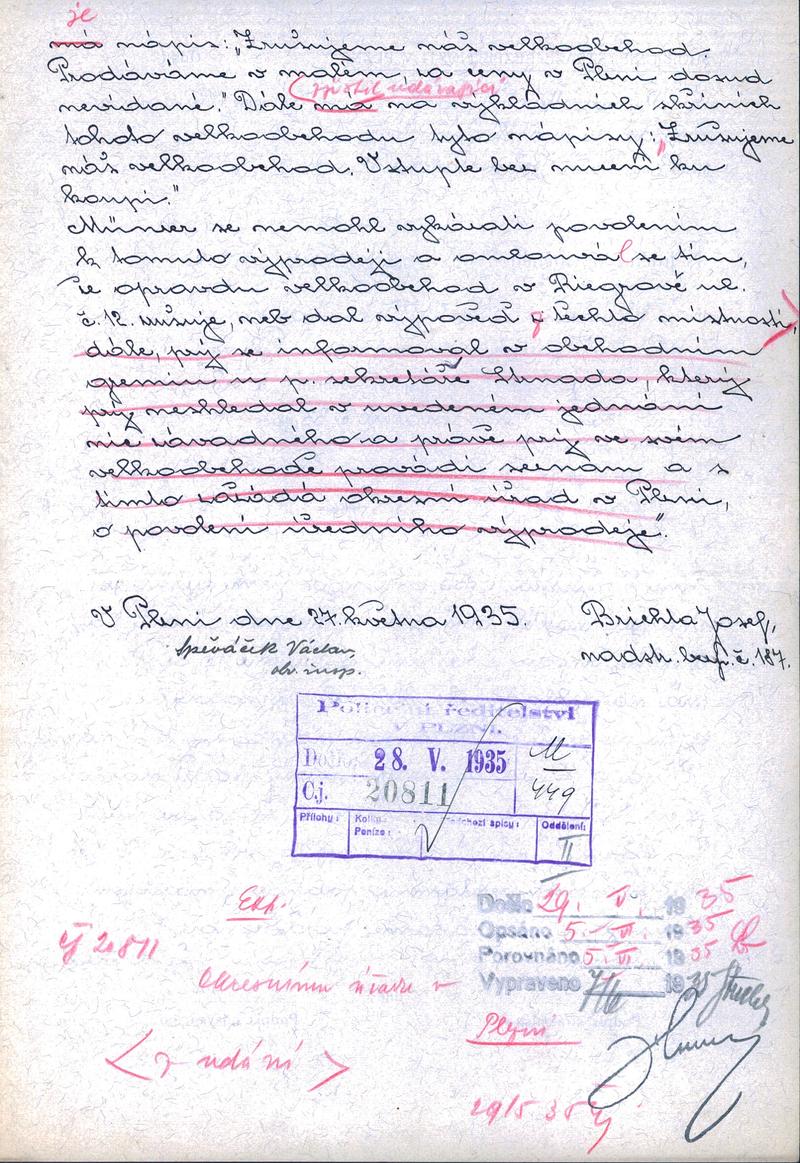 je
má nápis: „Zrušujeme náš velkoobchod.
Prodáváme v malém, za ceny v Plzni dosud
zjistil udávající
nevídané." Dále má na výkladních skříních
tohoto velkoobchodu tyto nápisy: „Zrušujeme
náš velkoobchod. Vstupte bez nucení ku
koupi."
se nemohl vykázati povolením
k tomuto výprodeji a omlouval se tím,
že opravdu velkoobchod v Riegrově ul.
č. 12. zrušuje, neb dal výpověď z těchto místností,
dále, prý se informoval v obchodním
gremiu u p. sekretáře Strnada, který
prý neshledal v uvedeném jednání
nic závadného a právě prý ve svém
velkoobchodě provádí seznam a s
tímto zažádá okresní úřad v Plzni,
o povolení úředního výprodeje".
V Plzni dne 27. května 1935. Brichta Josef,
Spěváček Václav, nadstr. č. 187.
obv. insp.
Policejní ředitelství
V PLZNI.
Došlo 28. V. 1935 M
Čj. 20811 449
Přílohy: Kolky: Předchozí spisy: Oddělení:
Peníze: II
Exp. Došlo 29. V. 1935
Opsáno 5. VI. 1935
čj 20811 Porovnáno 5. VI. 1935
Okresnímu úřadu v Vypraveno 7/6 1935
Plzni
z udání
29/5 35